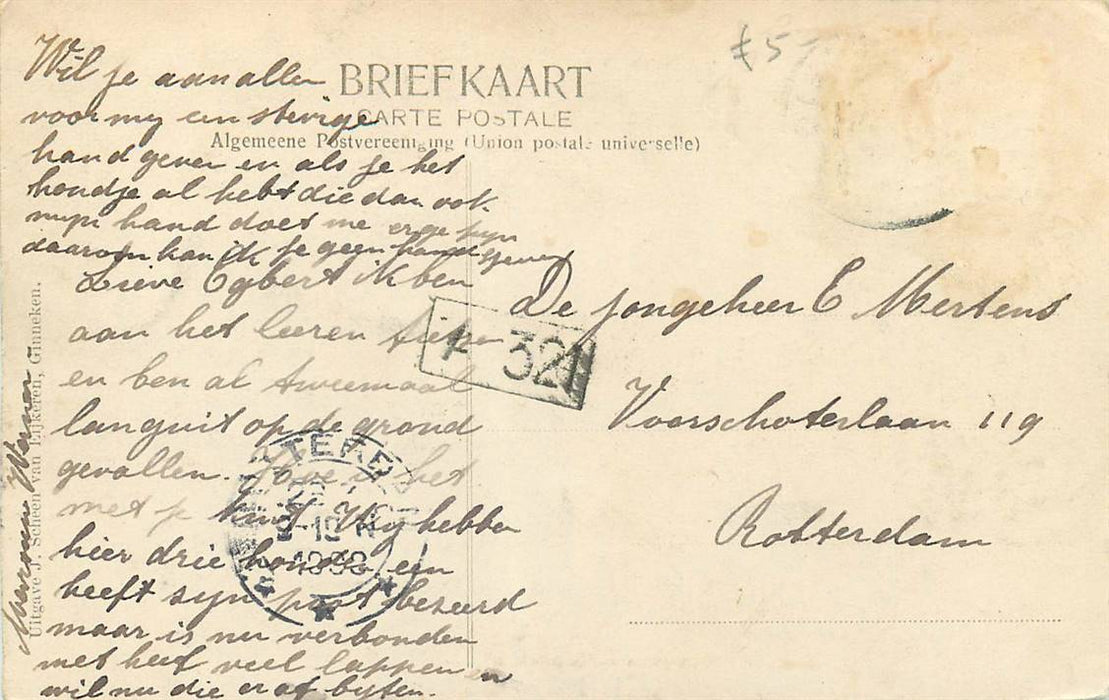 € 5-
BRIEFKAART
CARTE POSTALE
Algemeene Postvereeniging (Union postale universelle)
Wil je aan allen
voor my een stevige
hand geven en als je het
hondje al hebt die dan ook
myn hand doet me erge pyn
daarom kan ik je geen hand geven
Lieve Egbert ik ben
aan het leeren
en ben al tweemaal
languit op de grond
gevallen. Hoe is het
met je Wy hebben
hier drie honden een
heeft zyn poot bezeerd
maar is nu verbonden
met heel veel lappen en
wil nu die er af byten.
Uitgave J. Scheen van Lijkeren, Ginneken.
De jongeheer E Mertens
Voorschoterlaan 119
Rotterdam
321
10
N